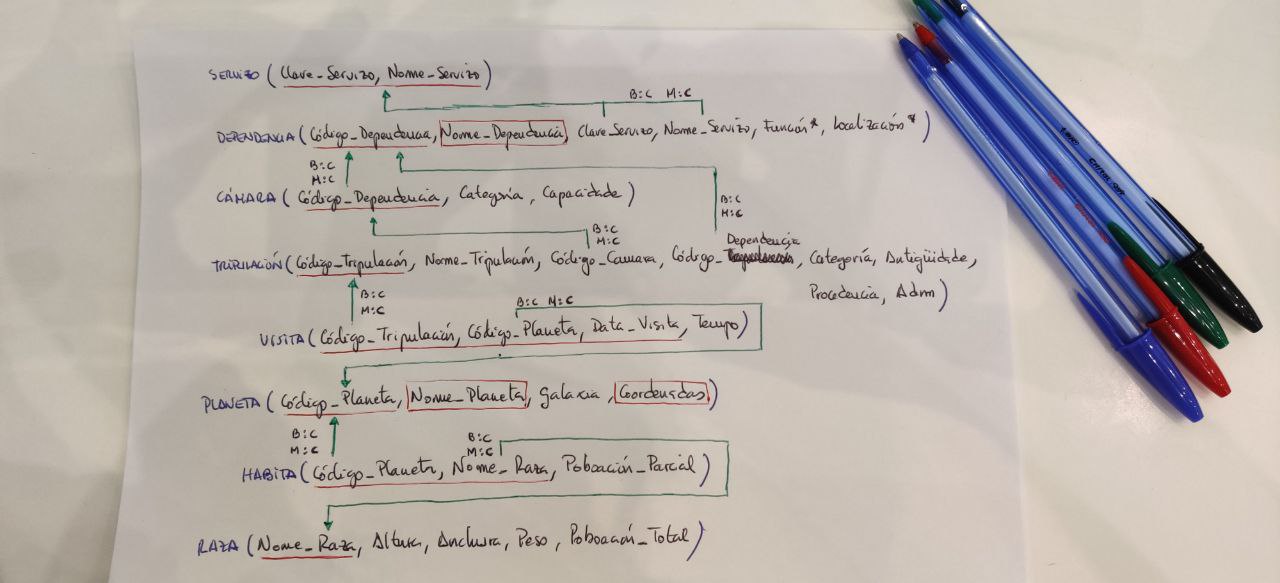 SERVIZO (Clave_Servizo, Nome_Servizo)
B:C M:C
DEPENDENCIA (Código_Dependencia, Nome_Dependencia, Clave_Servizo, Nome_Servizo, Función*, Localización*)
B:C
M:C
CÁMARA (Código_Dependencia, Categoría, Capacidade)
B:C
M:C
B:C
M:C
Dependencia
TRIPULACIÓN (Código_Tripulación, Nome_Tripulación, Código_Camara, Código_, Categoría, Antigüidade,
Procedencia, Adm)
B:C
M:C
B:C M:C
VISITA (Código_Tripulación, Código_Planeta, Data_Visita, Tempo)
PLANETA (Código_Planeta, Nome_Planeta, Galaxia, Coordenadas)
B:C
M:C
B:C
M:C
HABITA (Código_Planeta, Nome_Raza, Poboación_Parcial)
RAZA (Nome_Raza, Altura, Anchura, Peso, Poboación_Total)